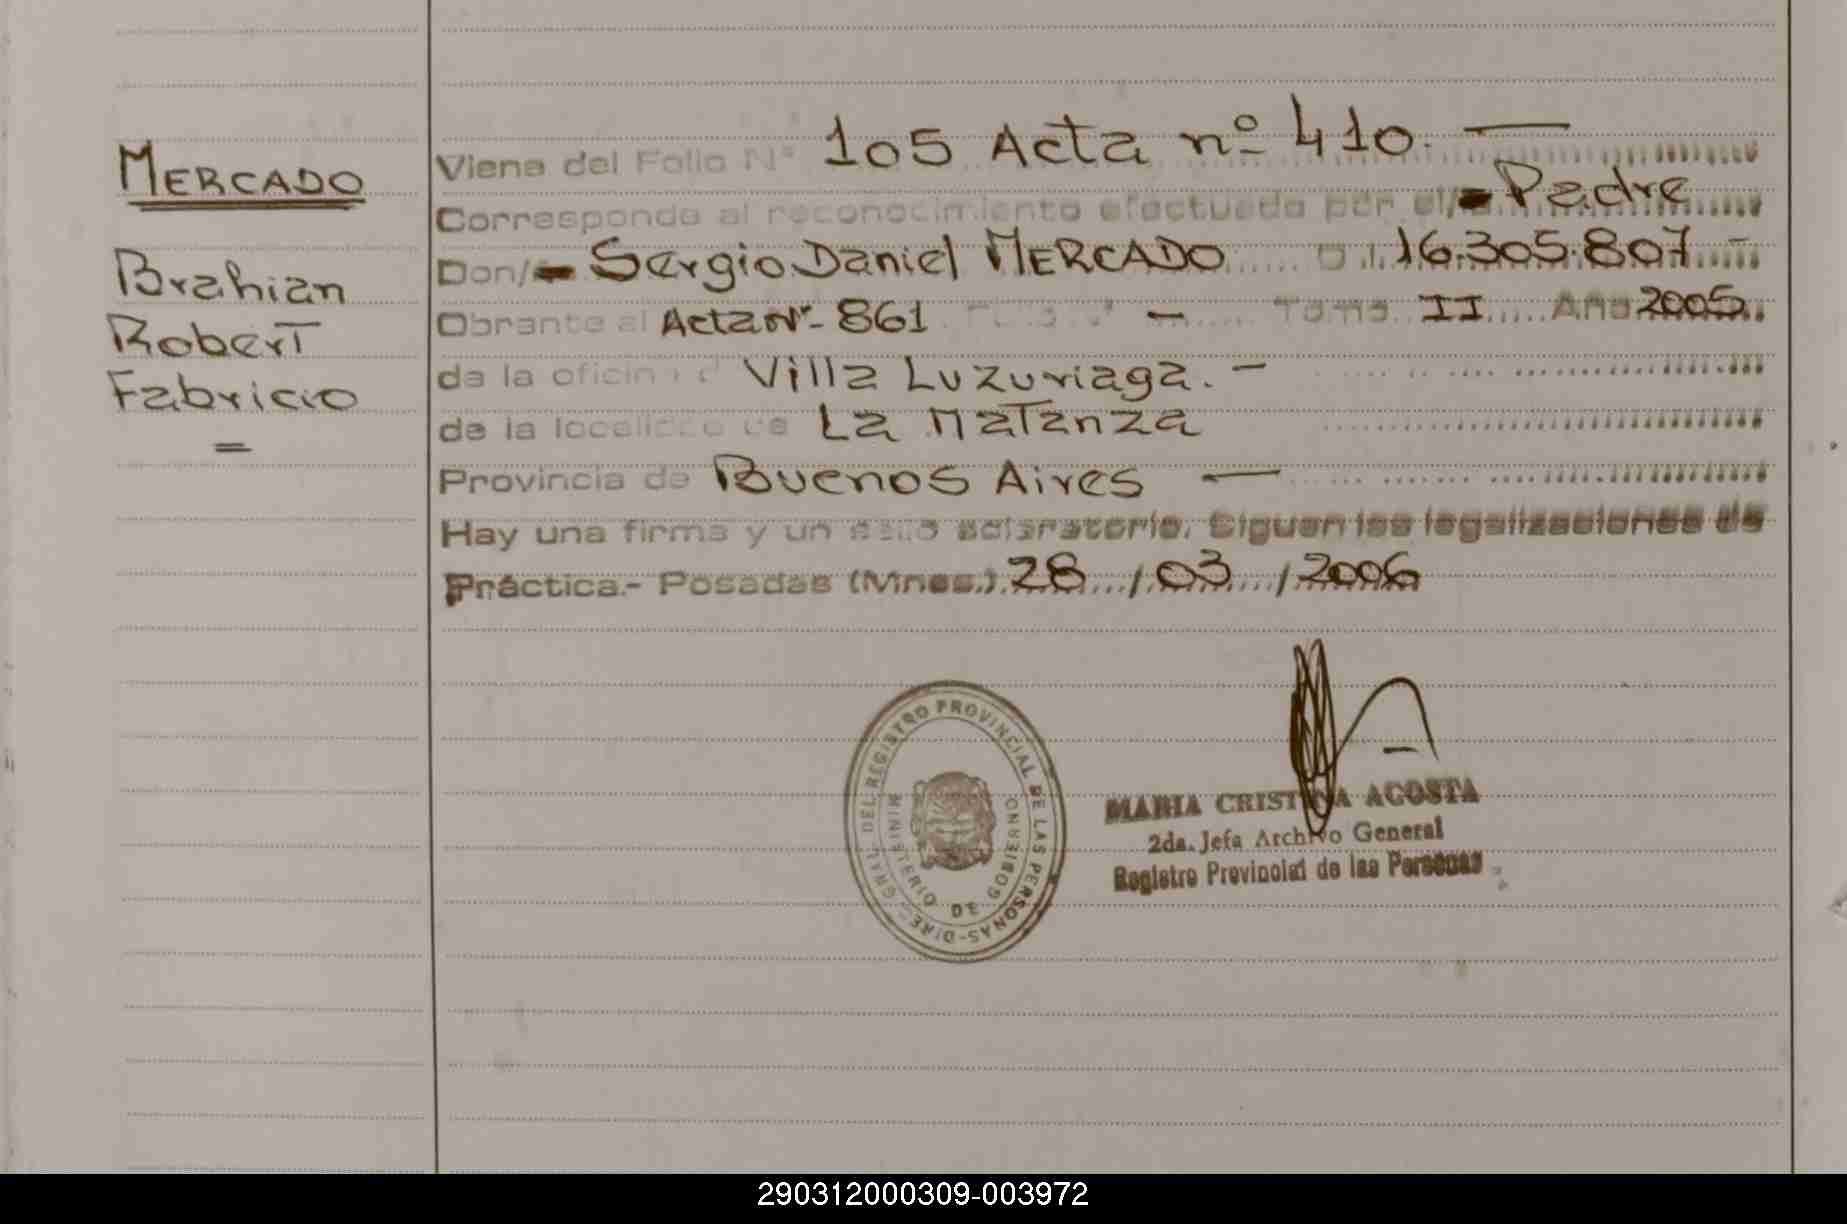 MERCADO
Brahian
Robert
Fabricio
Viene del Folio Nº 105 Acta nº 410.
Corresponde al reconocimiento efectuado por el/ Padre
Don/ Sergio Daniel MERCADO D.I. 16.305.807 -
Obrante al Acta Nº- 861 Folio Nº - Tomo II Año 2005
de la oficina d Villa Luzuriaga. -
de la localidad de La Matanza
Provincia de Buenos Aires -
Hay una firma y un sello aclaratorio. Siguen las legalizaciones de
Práctica.- Posadas (Mnes.) 28/03/2006
DIREC. GRAL. DEL REGISTRO PROVINCIAL DE LAS PERSONAS-
MINISTERIO DE GOBIERNO
MARIA CRISTINA ACOSTA
2da. Jefa Archivo General
Registro Provincial de las Personas
290312000309-003972